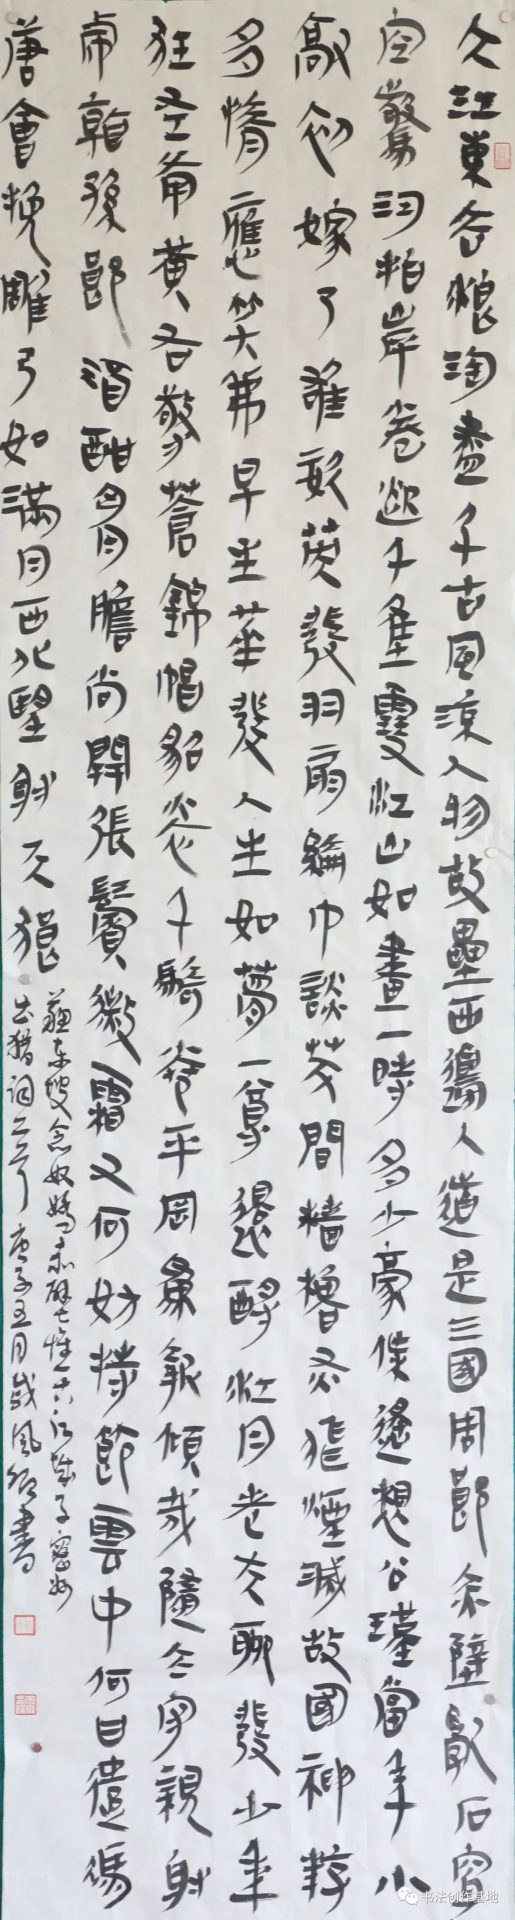 大江東去浪淘盡千古風流人物故壘西邊人道是三國周郎赤壁亂石穿
空驚濤拍岸卷起千堆雪江山如畫一時多少豪傑遙想公瑾當年小
喬初嫁了雄姿英發羽扇綸巾談笑間檣櫓灰飛煙滅故國神游
多情應笑我早生華發人生如夢一尊還酹江月老夫聊發少年
狂左牽黃右擎蒼錦帽貂裘千騎卷平岡為報傾城隨太守親射
虎看孫郎酒酣胸膽尚開張鬢微霜又何妨持節雲中何日遣馮
唐會挽雕弓如滿月西北望射天狼
蘇東坡念奴嬌赤壁懷古江城子密州
出獵詞二首庚子五月書
书法创作基地